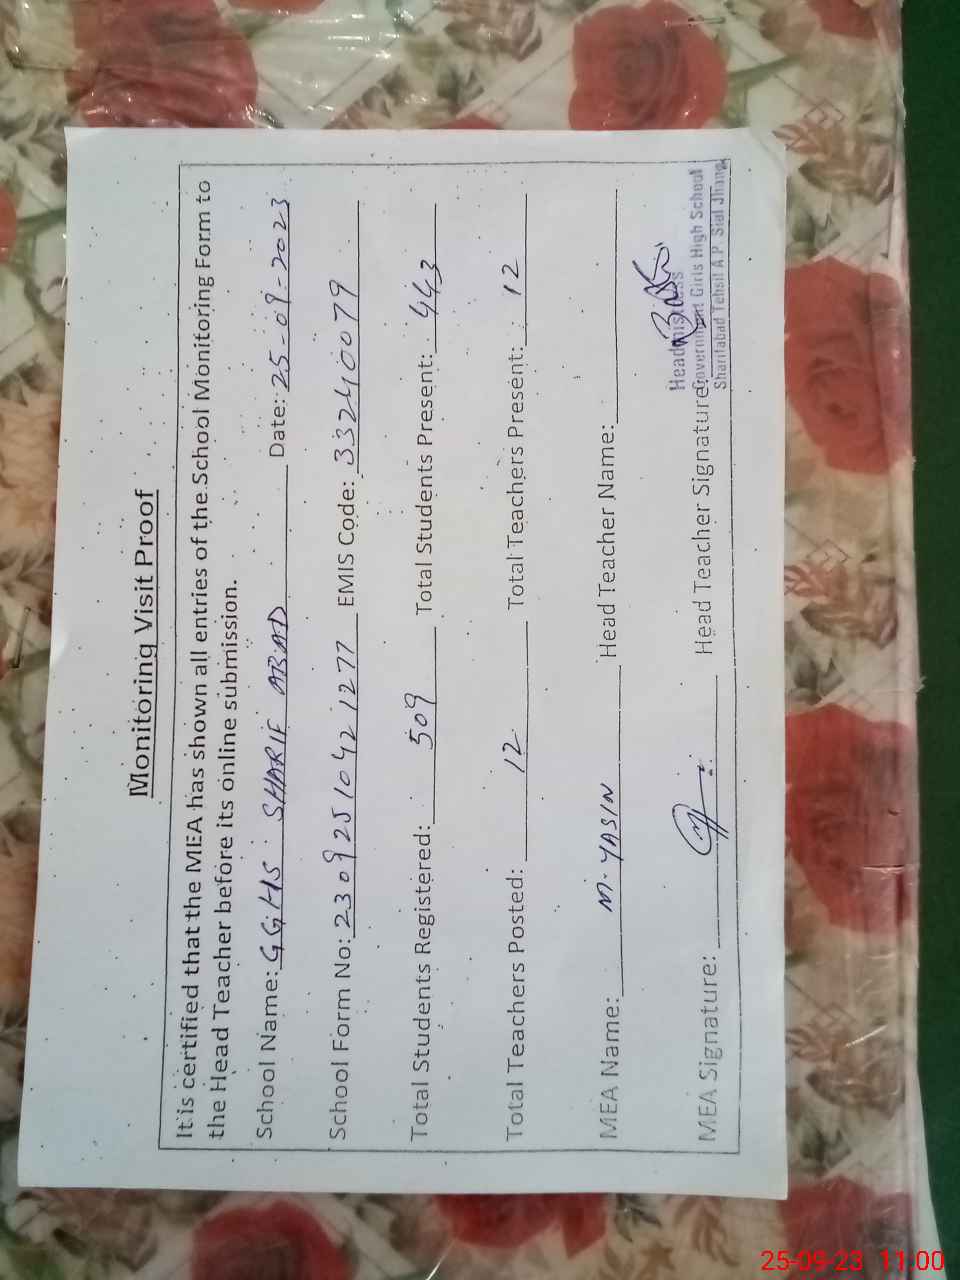 Monitoring Visit Proof
It is certified that the MEA has shown all entries of the School Monitoring Form to
the Head Teacher before its online submission.
School Name: GGHS SHARIF ABAD Date: 25-09-2023
School Form No: 23092510421277 EMIS Code: 33240079
Total Students Registered: 509 Total Students Present: 443
Total Teachers Posted: 12 Total Teachers Present: 12
MEA Name: M. YASIN Head Teacher Name:
MEA Signature: Head Teacher Signature:
Headmistress
Government Girls High School
Sharifabad Tehsil A.P. Sial Jhang
25-09-23 11:00